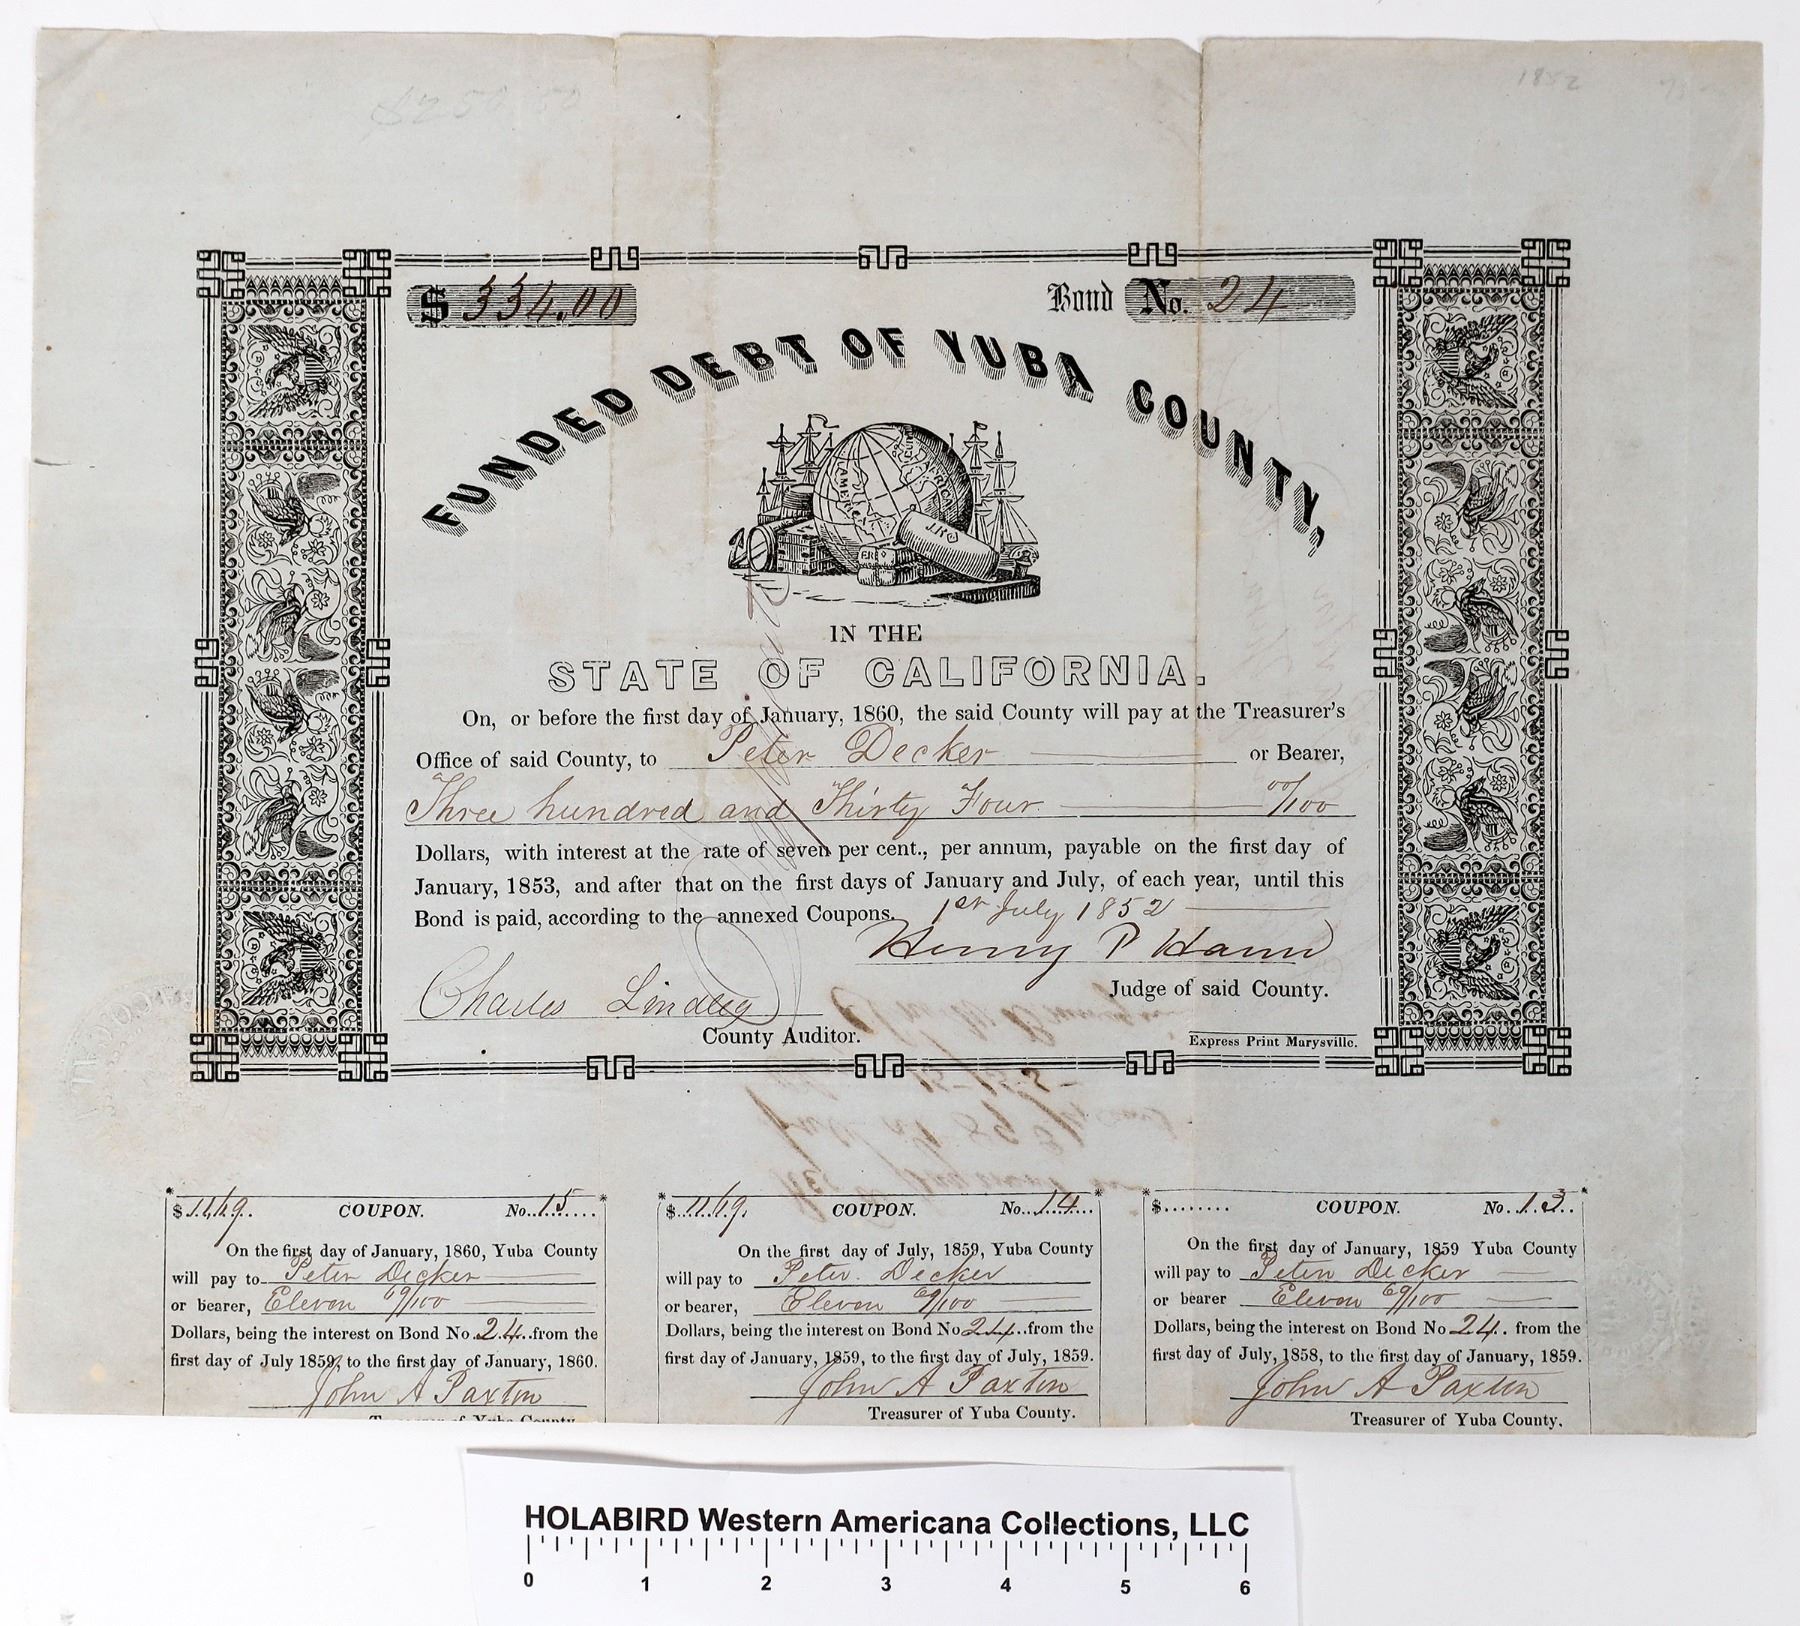 1852
$ 334.00 Bond No. 24
FUNDED DEBT OF YUBA COUNTY,
AMERICA AFRICA
J.R.
F.R.
IN THE
STATE OF CALIFORNIA.
On, or before the first day of January, 1860, the said County will pay at the Treasurer's
Office of said County, to Peter Decker or Bearer,
Three hundred and Thirty Four 00/100
Dollars, with interest at the rate of seven per cent., per annum, payable on the first day of
January, 1853, and after that on the first days of January and July, of each year, until this
Bond is paid, according to the annexed Coupons. 1st July 1852
Henry P Haun
Judge of said County.
Charles Lindley
County Auditor.
Express Print Marysville.
$ 11.69. COUPON. No. 15
On the first day of January, 1860, Yuba County
will pay to Peter Decker
or bearer, Eleven 69/100
Dollars, being the interest on Bond No. 24 from the
first day of July 1859, to the first day of January, 1860.
John A Paxton
Treasurer of Yuba County
$ 11.69. COUPON. No. 14
On the first day of July, 1859, Yuba County
will pay to Peter. Decker
or bearer, Eleven 69/100
Dollars, being the interest on Bond No 24 from the
first day of January, 1859, to the first day of July, 1859.
John A Paxton
Treasurer of Yuba County.
$........ COUPON. No. 13
On the first day of January, 1859 Yuba County
will pay to Peter Decker
or bearer Eleven 69/100
Dollars, being the interest on Bond No 24. from the
first day of July, 1858, to the first day of January, 1859.
John A Paxton
Treasurer of Yuba County.
HOLABIRD Western Americana Collections, LLC
0 1 2 3 4 5 6